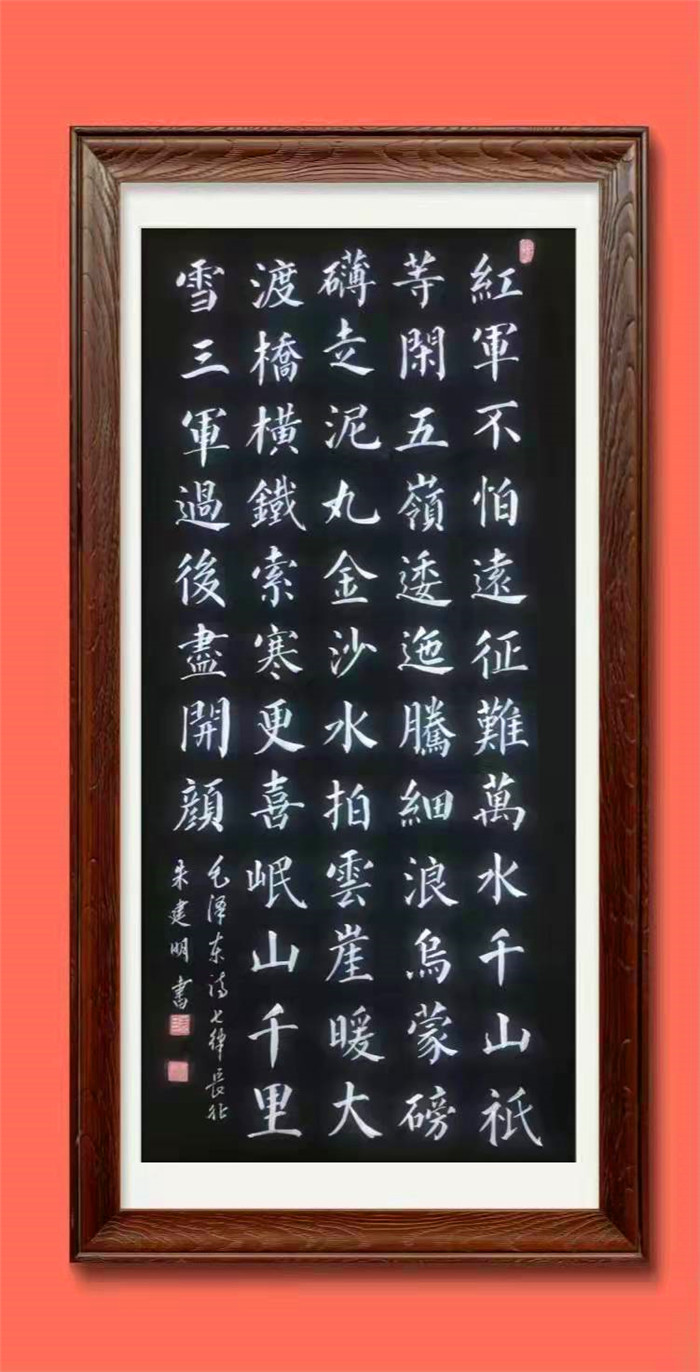 紅軍不怕遠征難萬水千山祇
等閑五嶺逶迤騰細浪烏蒙磅
礴走泥丸金沙水拍雲崖暖大
渡橋橫鐵索寒更喜岷山千里
雪三軍過後盡開顏
毛澤东诗七律長征
朱建明書